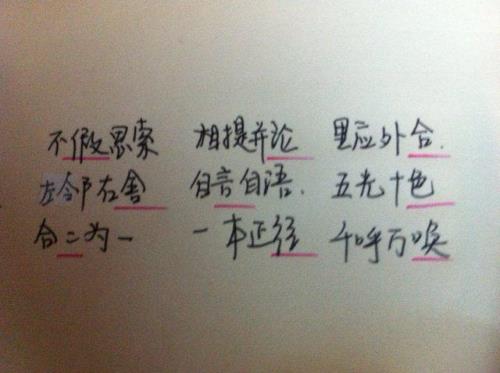 不假思索 相提并论 里应外合.
左邻右舍 自言自语. 五光十色
合二为一 一本正经 千呼万唤